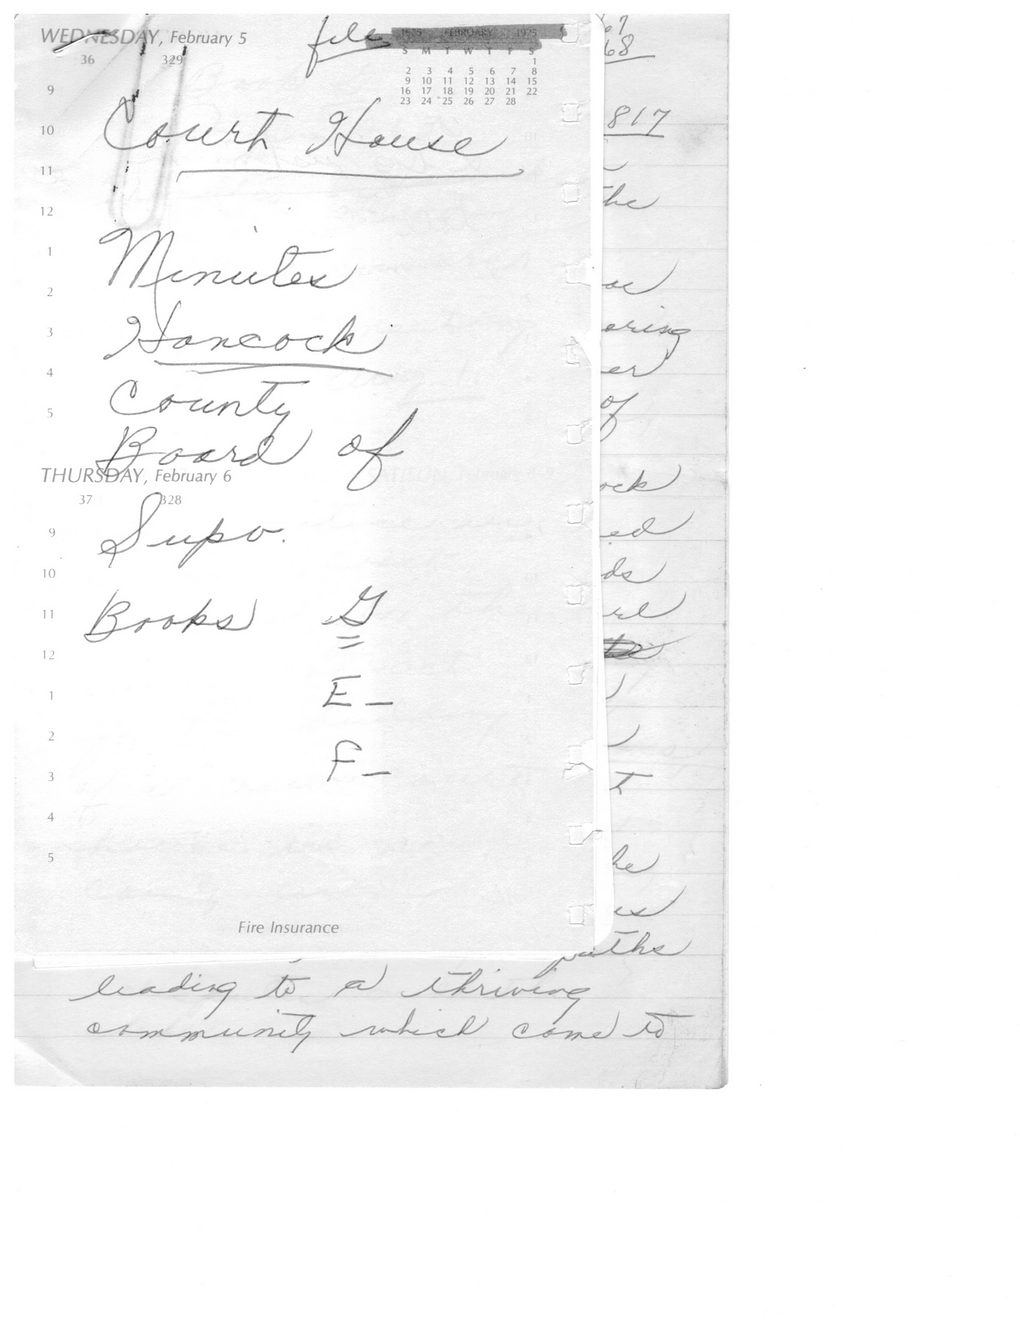 WEDNESDAY, February 5
file
1975 FEBRUARY 1975
S M T W T F S
1
2 3 4 5 6 7 8
9 10 11 12 13 14 15
16 17 18 19 20 21 22
23 24 25 26 27 28
36 329
9
10
11
12
1
2
3
4
5
Court House
Minutes
Hancock
County
Board of
THURSDAY, February 6
37 328
Supv.
Books G
E –
F –
9
10
11
12
1
2
3
4
5
Fire Insurance
67
68
817
the
oring
er
of
ock
ed
ds
he
us
paths
leading to a thriving
community which came to